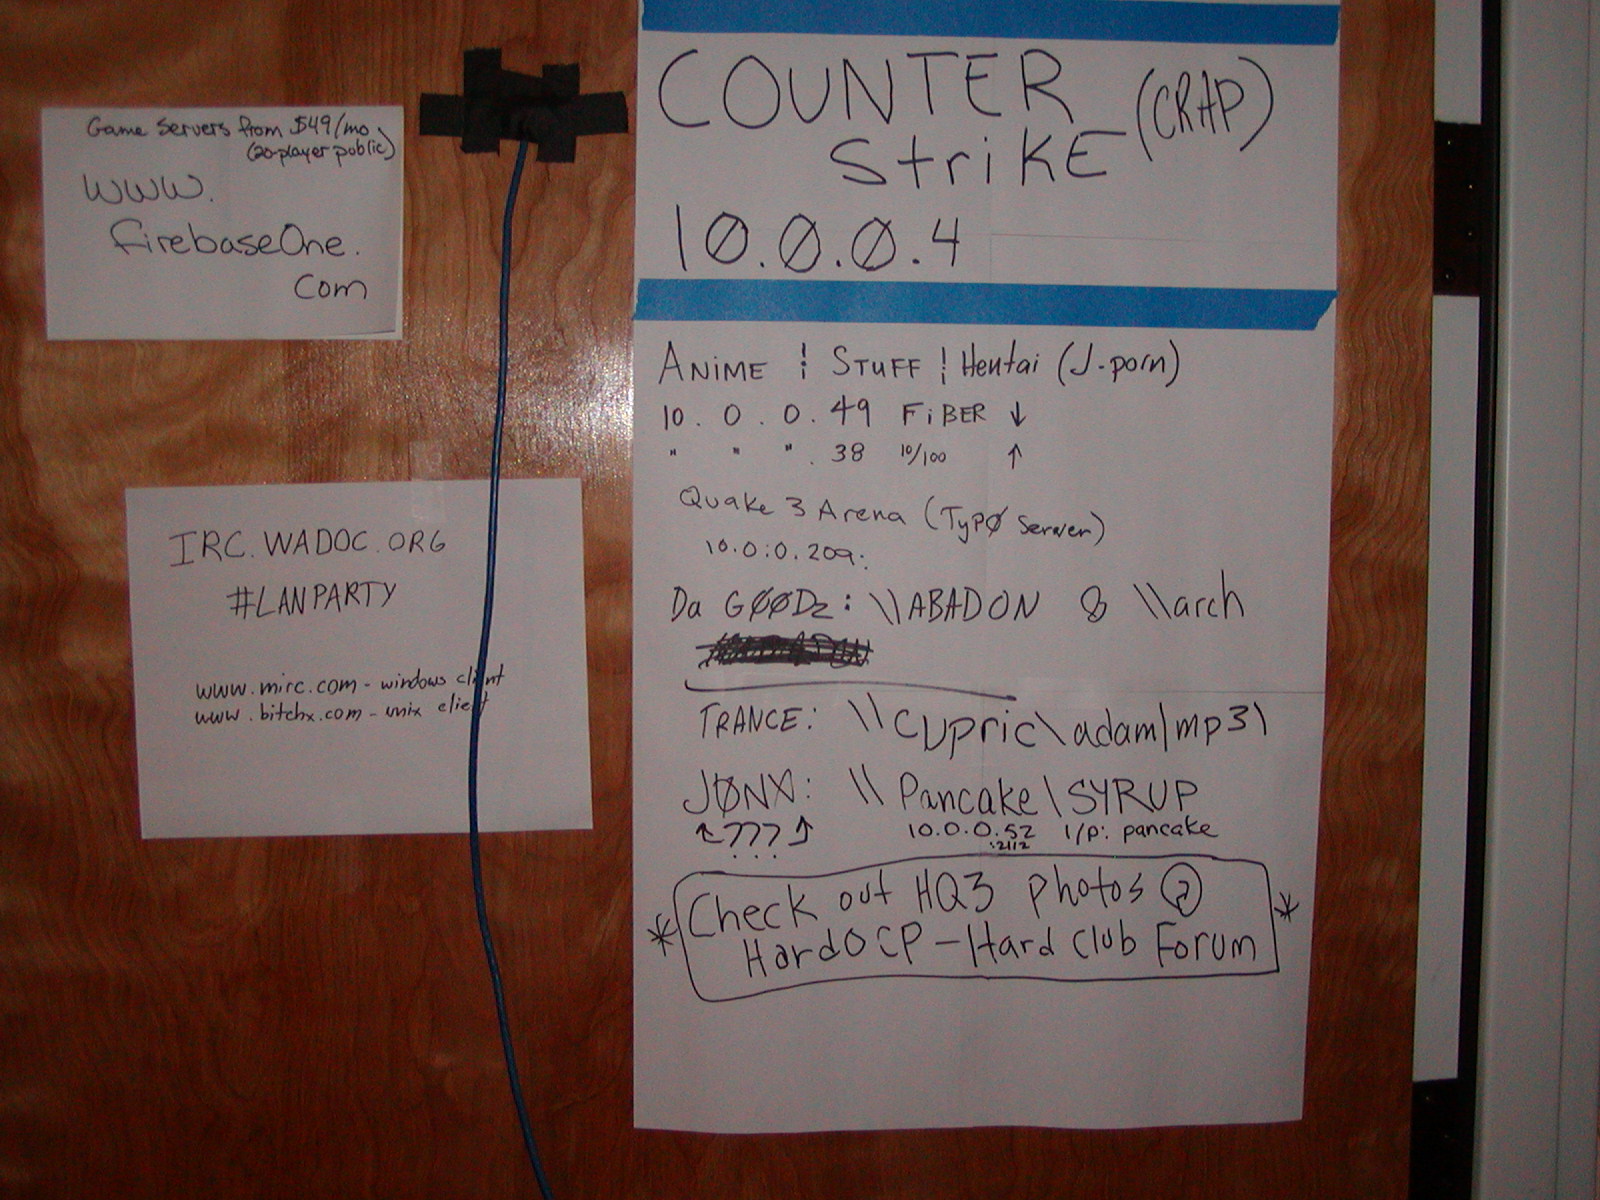 Game Servers from $49/mo
(20-player public)
www.
firebaseOne.
com
IRC.WADOC.ORG
#LANPARTY
www.mirc.com - windows client
www.bitchx.com - unix client
COUNTER (CRAP)
StriKE
10.0.0.4
ANiME ¦ STUFF ¦ Hentai (J-porn)
10. 0. 0. 49 FiBER ↓
" " ". 38 10/100 ↑
Quake 3 Arena (TypØ Server)
10.0.0.209:
Da GØØDz: \\ABADON & \\arch
TRANCE: \\Cupric\adam|mp3\
JØNX: \\Pancake\SYRUP
↑???↑ 10.0.0.52 l/p: pancake
:2112
*Check out HQ3 photos @ *
HardOCP - Hard Club Forum